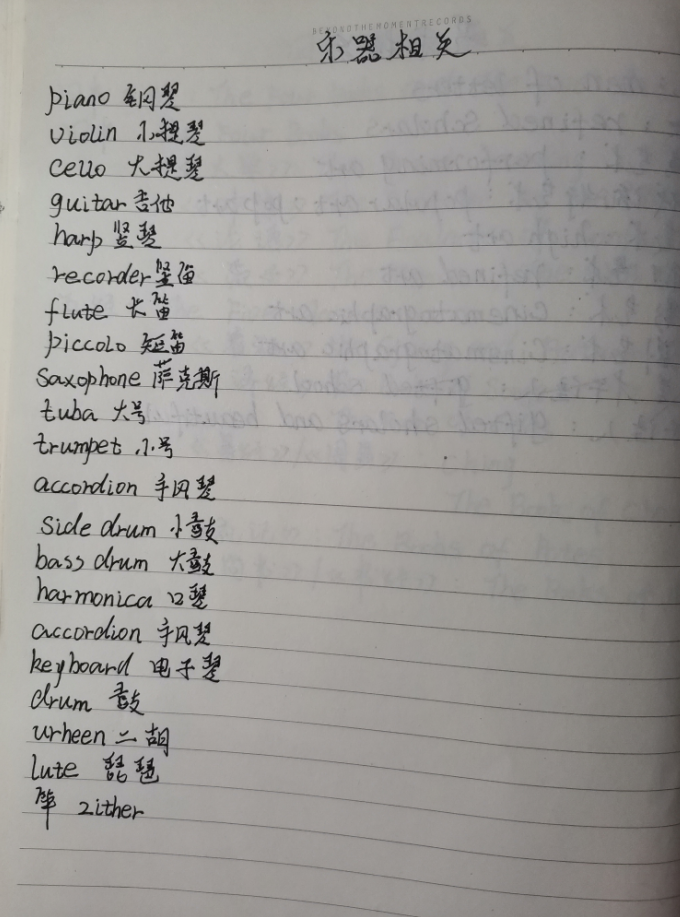 BEYONDTHEMOMENTRECORDS
乐器相关
piano 钢琴
violin 小提琴
cello 大提琴
guitar 吉他
harp 竖琴
recorder 竖笛
flute 长笛
piccolo 短笛
saxophone 萨克斯
tuba 大号
trumpet 小号
accordion 手风琴
side drum 小鼓
bass drum 大鼓
harmonica 口琴
accordion 手风琴
keyboard 电子琴
drum 鼓
urheen 二胡
lute 琵琶
zither